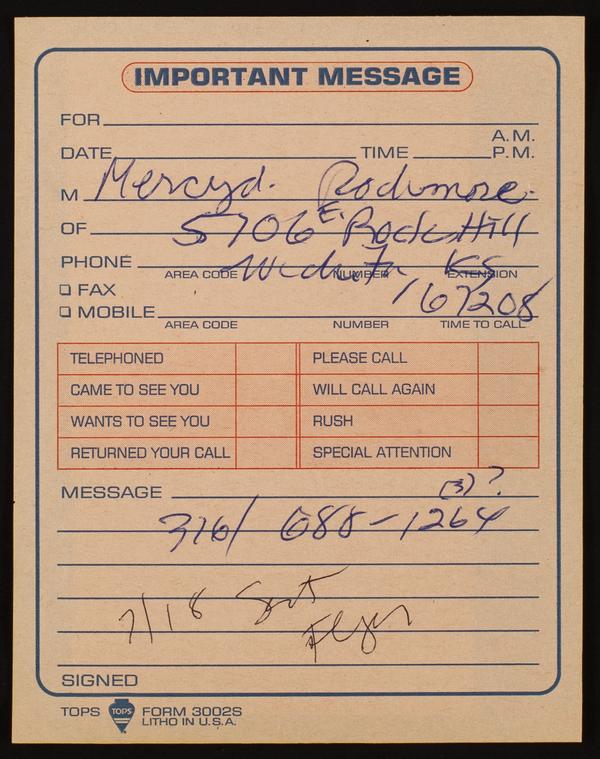 IMPORTANT MESSAGE
FOR
A.M.
DATE TIME P.M.
M Mercyd. Rodumore.
OF 5706 E. Rock Hill
PHONE
AREA CODE NUMBER EXTENSION
Wichita KS
FAX
67208
MOBILE
AREA CODE NUMBER TIME TO CALL
TELEPHONED PLEASE CALL
CAME TO SEE YOU WILL CALL AGAIN
WANTS TO SEE YOU RUSH
RETURNED YOUR CALL SPECIAL ATTENTION
MESSAGE (3)?
316/ 688-1264
7/18 Sent
Flyer
SIGNED
TOPS TOPS FORM 3002S
LITHO IN U.S.A.